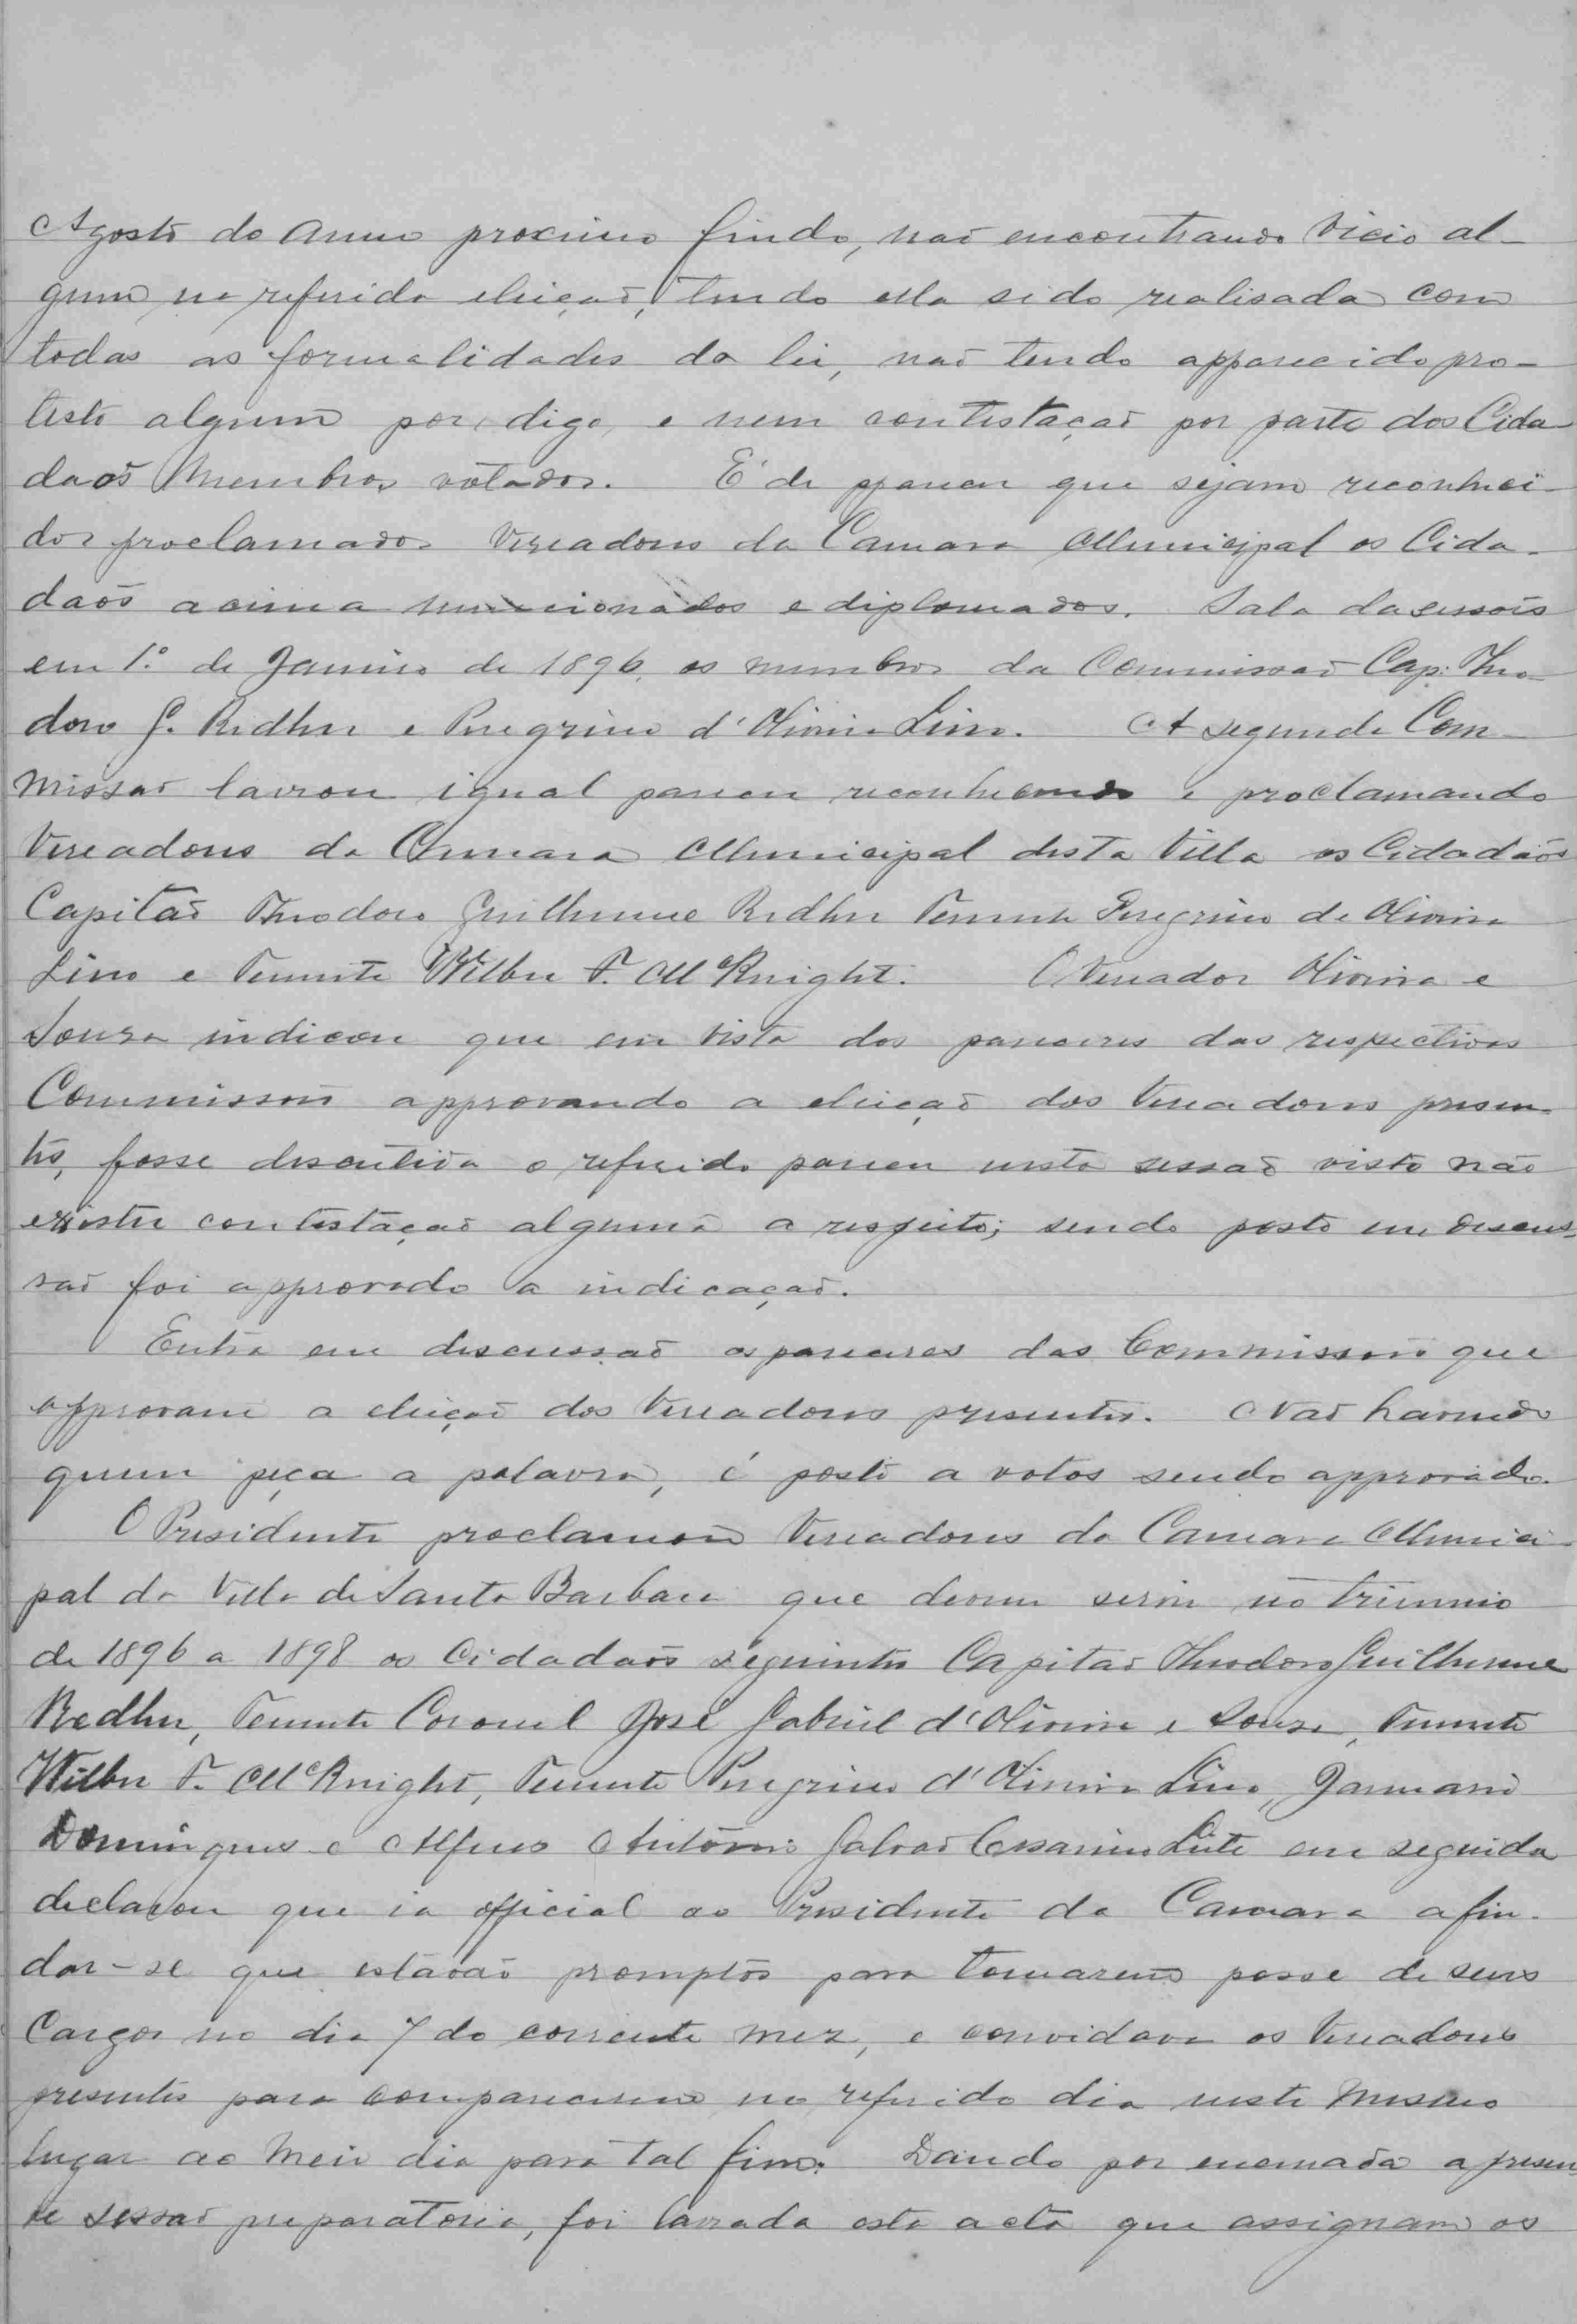 Agosto do anno proximo findo, naõ encontrando vicio al-
gum na referida eleiçaõ, tendo ella sido realisada com
todas as formalidades da lei, naõ tendo apparecido pro-
testo algum por, digo, e nem contestaçaõ por parte dos Cida-
daõs Membros votados. É de pparecer que sejam reconheci-
dos proclamados Vereadores da Camara Municipal os Cida-
daõs acima mencionados e diplomados. Sala da sessoẽs
em 1.º de Janeiro de 1896, os membros da Commissaõ Cap: Theo-
doro G. Redher e Peregrino d'Oliveira Lino. A segunda Com-
missaõ lavrou igual parecer reconhecendo e proclamando
Vereadores da Camara Municipal desta Villa os Cidadaõs
Capitaõ Theodoro Guilherme Redher Tenente Peregrino de Oliveira
Lino e Tenente Wilber F. McKnight. O Vereador Oliveira e
Souza indicou que em vista dos pareceres das respectivas
Commissoẽs approvando a eleiçaõ dos Vereadores presen-
tes, fosse descutida o referido parecer nesta sessaõ visto não
existir contestaçaõ alguma a respeito; sendo posto em discus-
saõ foi approvado a indicaçaõ.
Entra em discussaõ os pareceres das Commissoẽs que
approvam a eleiçaõ dos Vereadores presentes. Naõ havendo
quem peça a palavra, é posto a votos sendo approvado.
O Presidente proclamou Vereadores da Camara Munici-
pal da Villa de Santa Barbara que devem servir no triennio
de 1896 a 1898 os Cidadaõs seguintes Capitaõ Theodoro Guilherme
Redher, Tenente Coronel José Gabriel d'Oliveira e Souza, Tenente
Wilber F. McKnight, Tenente Peregrino d'Oliveira Lino, Januario
Domingues e Alferes Antonio Galvaõ Cesarino Leite em seguida
declarou que ia official ao Presidente da Camara afin-
dar-se que estavaõ promptos para tomarem posse de seus
Cargos no dia 7 do corrente mez, e convidava os Vereadores
presentes para comparecerem no referido dia neste mesmo
lugar ao meio dia para tal fim. Dando por encerrada a presen-
te sessaõ preparatoria, foi lavrada esta acta que assignam os